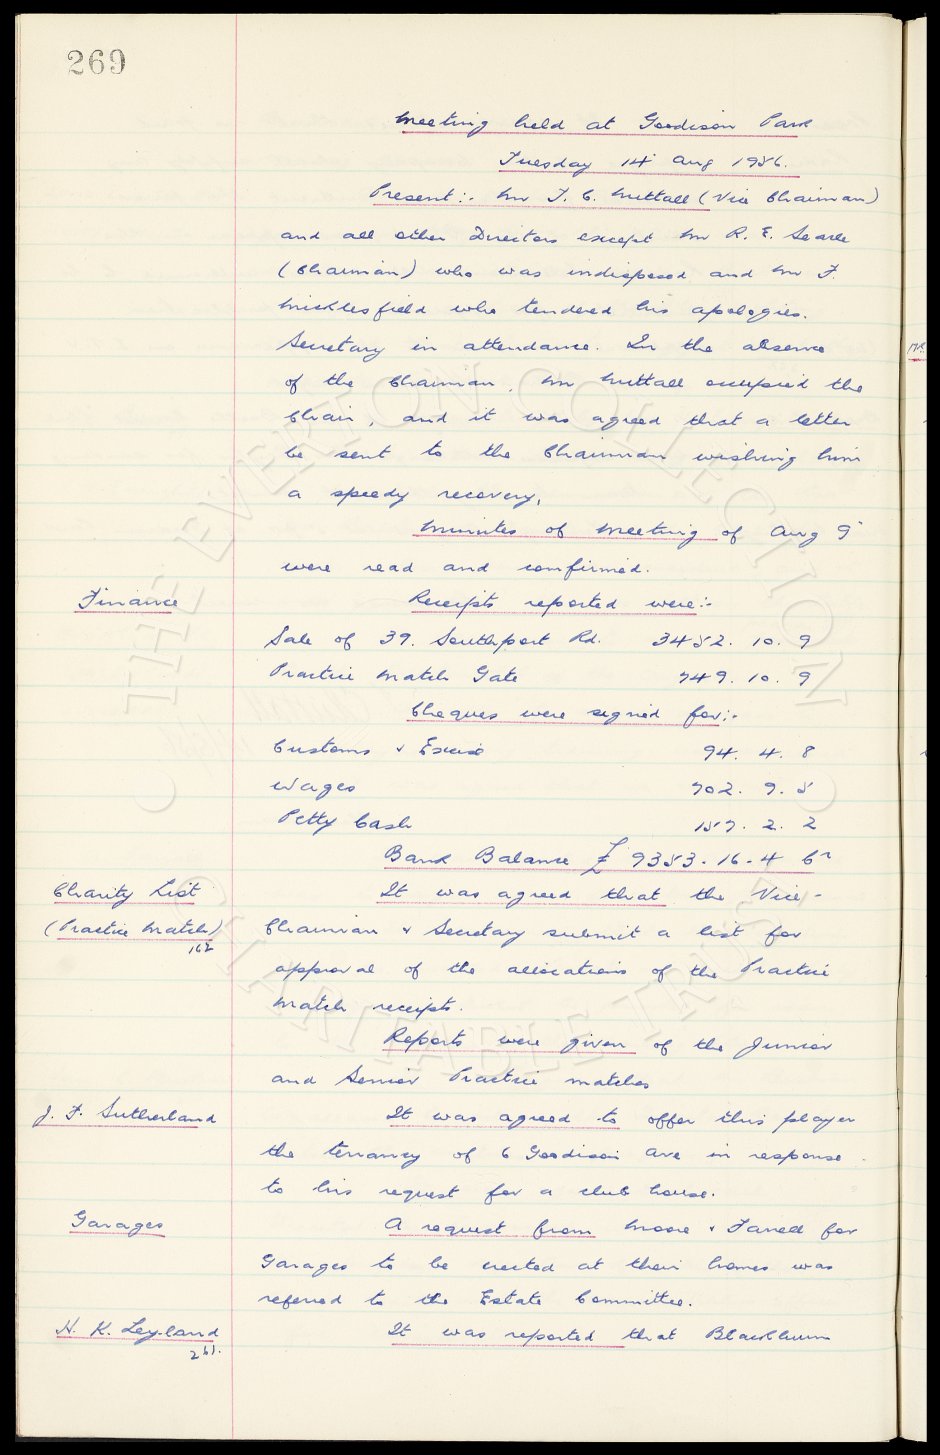 269
Meeting held at Goodison Park
Tuesday 14th Aug 1956.
Present:- Mr T. C. Nuttall (Vice Chairman)
and all other Directors except Mr R. E. Searle
(Chairman) who was indisposed and Mr F.
Micklesfield who tendered his apologies.
Secretary in attendance. In the absence
of the Chairman, Mr Nuttall occupied the
Chair, and it was agreed that a letter
be sent to the Chairman wishing him
a speedy recovery.
Minutes of Meeting of Aug 9th
were read and confirmed.
Finance Receipts reported were:-
Sale of 39. Southport Rd. 3452. 10. 9
Practice Match Gate 749. 10. 9
Cheques were signed for:-
Customs & Excise 94. 4. 8
Wages 702. 9. 5
Petty Cash 157. 2. 2
Bank Balance £ 9353-16-4 Cr
Charity List It was agreed that the Vice-
(Practice Match) Chairman & Secretary submit a list for
162
approval of the allocations of the Practice
Match receipts.
Reports were given of the Junior
and Senior Practice matches
J. F. Sutherland It was agreed to offer this player
the tenancy of 6 Goodison Ave in response
to his request for a club house.
Garages A request from Moore & Farrell for
Garages to be erected at their homes was
referred to the Estate Committee.
H. K. Leyland It was reported that Blackburn
261.
THE EVERTON COLLECTION
CHARITABLE TRUST